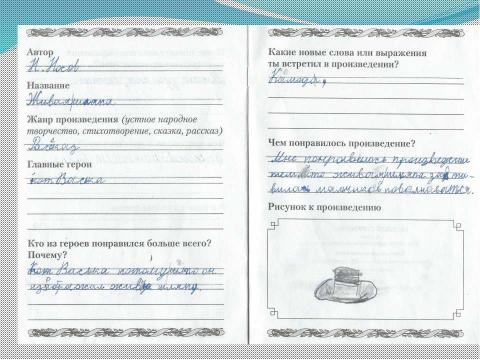 Автор
Н. Носов
Название
Живая шляпа
Жанр произведения (устное народное
творчество, стихотворение, сказка, рассказ)
Рассказ
Главные герои
кот Васька
Кто из героев понравился больше всего?
Почему?
Кот Васька потому что он
изображал живую шляпу.
Какие новые слова или выражения
ты встретил в произведении?
Комода,
Чем понравилось произведение?
Мне понравилось произведение
тем, что живая шляпа заста-
вила мальчиков поволноваться.
Рисунок к произведению